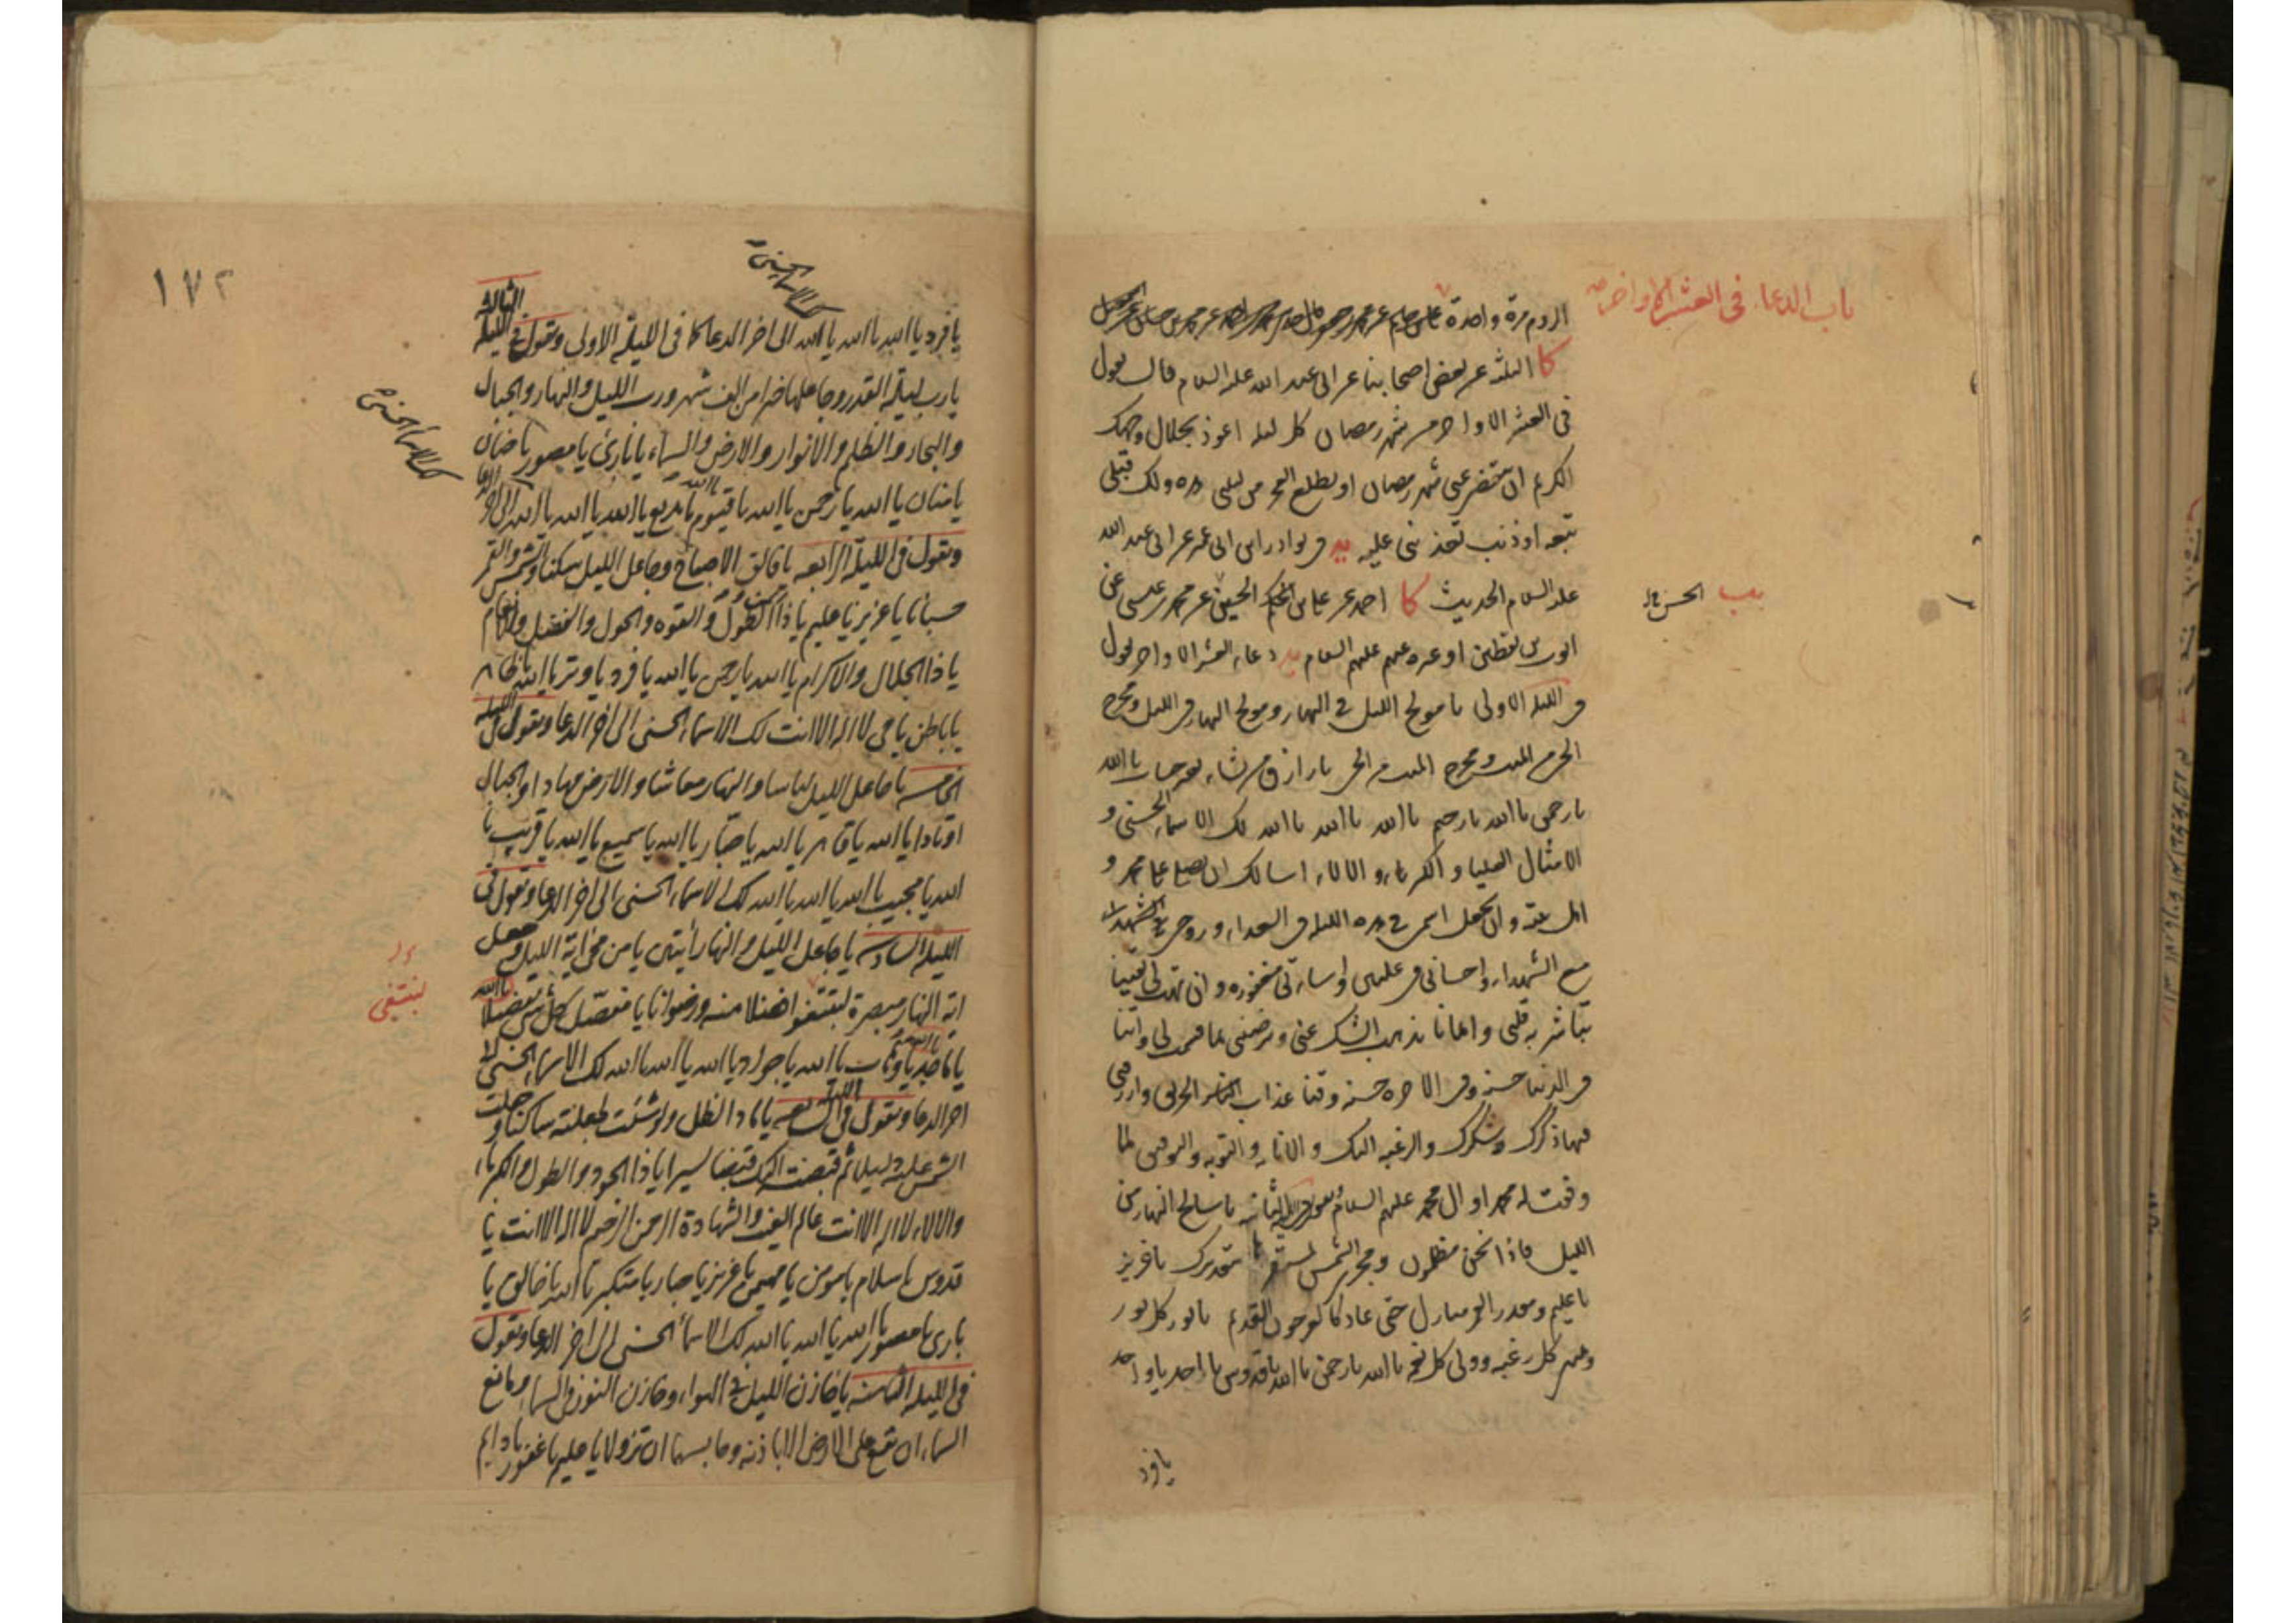 باب الدعاء في العشر الاواخر
الروم مرة واحدة
كا الثلثة عن بعض اصحابنا عن ابى عبد الله عليه السلام قال يقول
في العشر الاواخر من شهر رمضان كل ليلة اعوذ بجلال وجهك
الكريم ان ينقضى عنى شهر رمضان او يطلع الفجر من ليلتى هذه ولك قبلى
تبعة او ذنب تعذبنى عليه يه في نوادر ابن ابى عمير عن ابى عبد الله
عليه السلام الحديث كا احمد عن على بن الحسين عن محمد بن عيسى عن
يب الحسن خ ل
ايوب بن يقطين او غيره عنهم عليهم السلام يه دعاء العشر الاواخر يقول
في الليلة الاولى يا مولج الليل في النهار ومولج النهار في الليل ومخرج
الحي من الميت ومخرج الميت من الحي يا رازق من تشاء بغير حساب يا الله
يا رحمن يا الله يا رحيم يا الله يا الله يا الله لك الاسماء الحسنى و
الامثال العليا والكبرياء والالاء اسالك ان تصلى على محمد و
اهل بيته وان تجعل اسمى في هذه الليلة في السعداء وروحى
مع الشهداء واحسانى في عليين واساءتى مغفورة وان تهب لى يقينا
تباشر به قلبى وايمانا يذهب الشك عنى وترضينى بما قسمت لى واتنا
في الدنيا حسنة وفى الاخرة حسنة وقنا عذاب النار الحريق وارزقنى
فيها ذكرك وشكرك والرغبة اليك والانابة والتوبة والتوفيق لما
وفقت له محمدا وال محمد عليهم السلام ويقول في الليلة الثانية يا سالخ النهار من
الليل فاذا نحن مظلمون ومجرى الشمس لمستقرها بتقديرك يا عزيز
يا عليم ومقدر القمر منازل حتى عاد كالعرجون القديم يا نور كل نور
ومنتهى كل رغبة وولى كل نعمة يا الله يا رحمن يا الله يا قدوس يا احد يا واحد
يا فرد
١٧٢
لك الاسماء الحسنى
يا فرد يا الله يا الله يا الله الى اخر الدعاء كما في الليلة الاولى وتقول في الليلة الثالثة
يا رب ليلة القدر وجاعلها خيرا من الف شهر ورب الليل والنهار والجبال
والبحار والظلم والانوار والارض والسماء يا بارئ يا مصور يا حنان
لك الاسماء الحسنى
يا منان يا الله يا رحمن يا الله يا قيوم يا الله يا بديع يا الله يا الله يا الله الى اخر الدعا
وتقول في الليلة الرابعة يا فالق الاصباح وجاعل الليل سكنا والشمس والقمر
حسبانا يا عزيز يا عليم يا ذا المن والطول والقوة والحول والفضل والانعام
يا ذا الجلال والاكرام يا الله يا رحمن يا الله يا فرد يا وتر يا الله يا ظاهر
يا باطن يا حي لا اله الا انت لك الاسماء الحسنى الى اخر الدعا وتقول في الليلة
الخامسة يا جاعل الليل لباسا والنهار معاشا والارض مهادا والجبال
اوتادا يا الله يا قاهر يا الله يا جبار يا الله يا سميع يا الله يا قريب يا
الله يا مجيب يا الله يا الله يا الله لك الاسماء الحسنى الى اخر الدعا وتقول في
الليلة السادسة يا جاعل الليل والنهار آيتين يا من محى اية الليل وجعل
اية النهار مبصرة لتبتغوا فضلا منه ورضوانا يا مفصل كل شئ تفصيلا
لنبتغى
يا ماجد يا الله يا وهاب يا الله يا جواد يا الله يا الله يا الله لك الاسماء الحسنى الى
اخر الدعا وتقول في الليلة السابعة يا ماد الظل ولو شئت لجعلته ساكنا وجعلت
الشمس عليه دليلا ثم قبضته اليك قبضا يسيرا يا ذا الجود والطول والكبرياء
والالاء لا اله الا انت عالم الغيب والشهادة الرحمن الرحيم لا اله الا انت يا
قدوس يا سلام يا مومن يا مهيمن يا عزيز يا جبار يا متكبر يا الله يا خالق يا
بارئ يا مصور يا الله يا الله يا الله لك الاسماء الحسنى الى اخر الدعا وتقول
في الليلة الثامنة يا خازن الليل في الهواء وخازن النور في السماء ومانع
السماء ان تقع على الارض الا باذنه وحابسهما ان تزولا يا عليم يا غفور يا دايم